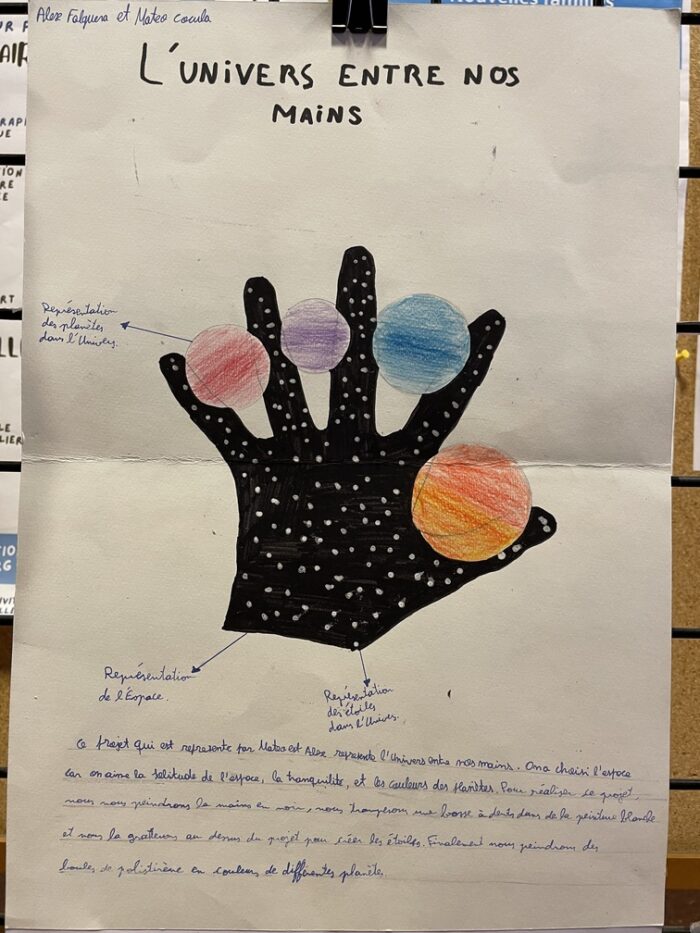 Alex Falguera et Mateo cocula
L'UNIVERS ENTRE NOS
MAINS
Représentation
des planètes
dans l'Univers.
Représentation
de l'Espace.
Représentation
des étoiles
dans l'Univers.
Ce projet qui est represente par Mateo et Alex represente l'Univers entre nos mains. On a choisi l'espace
car on aime la solitude de l'espace, la tranquilite, et les couleurs des planètes. Pour réaliser ce projet,
nous nous peindrons la mains en noir, nous tremperons une brosse à dents dans de la peinture blanche
et nous la gratterons au dessus du projet pour créer les étoiles. Finalement nous peindrons des
boules de polistirène en couleurs de différentes planètes.